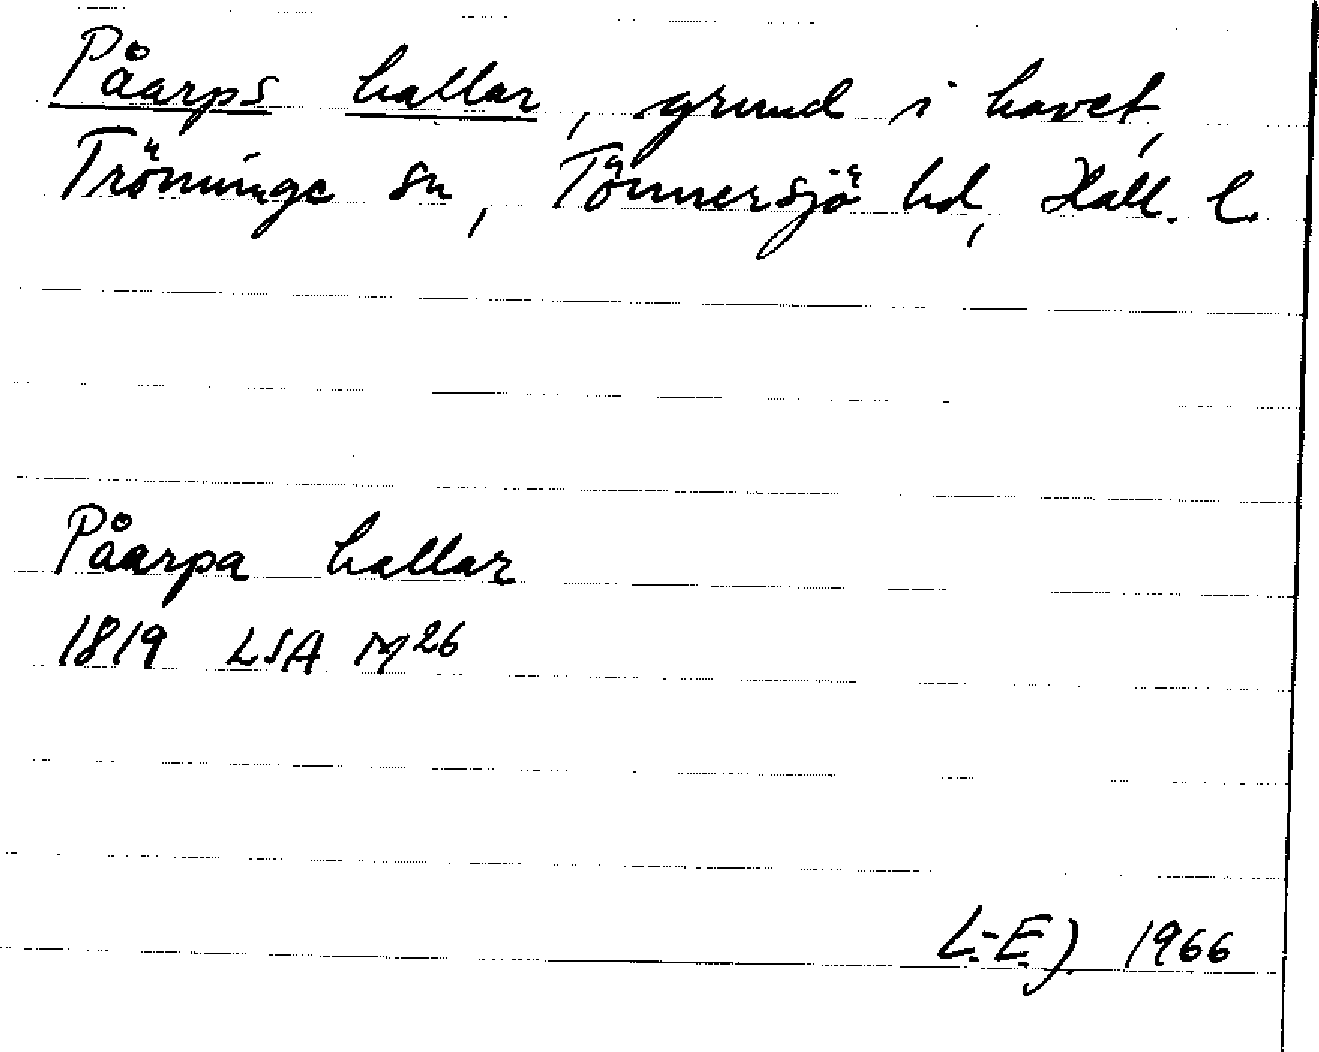 Påarps hallar, grund i havet,
Trönninge sn, Tönnersjö hd, Hall. l.
Påarpa hallar
1819 LSA M26
L-E J 1966